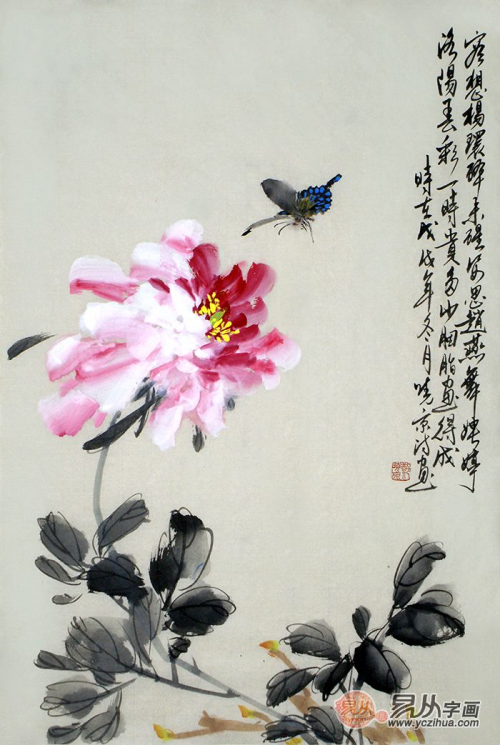 想楊環醉未醒思趙燕舞娉婷
洛陽春彩一時貴多少胭脂畫得成
時在戊戌年冬月曉京詩畫
易从
易从字画
www.yczihua.com